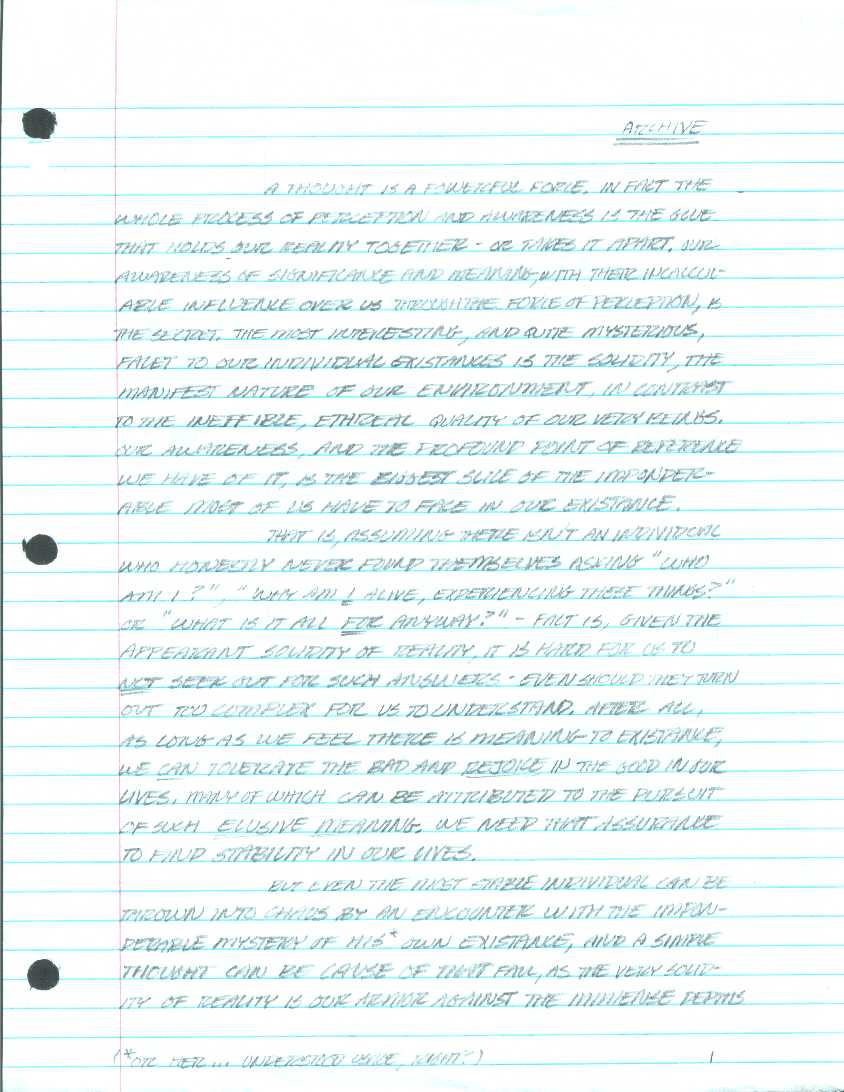 ARCHIVE
A THOUGHT IS A POWERFUL FORCE. IN FACT THE
WHOLE PROCESS OF PERCEPTION AND AWARENESS IS THE GLUE
THAT HOLDS OUR REALITY TOGETHER - OR TAKES IT APART. OUR
AWARENESS OF SIGNIFICANCE AND MEANING, WITH THEIR INCALCUL-
ABLE INFLUENCE OVER US THROUGH THE FORCE OF PERCEPTION, IS
THE SECRET. THE MOST INTERESTING, AND QUITE MYSTERIOUS,
FACET TO OUR INDIVIDUAL EXISTANCES IS THE SOLIDITY, THE
MANIFEST NATURE OF OUR ENVIRONMENT, IN CONTRAST
TO THE INEFFIBLE, ETHREAL QUALITY OF OUR VERY BEINGS.
OUR AWARENESS, AND THE PROFOUND POINT OF REFERENCE
WE HAVE OF IT, IS THE BIGGEST SLICE OF THE IMPONDER-
ABLE MOST OF US HAVE TO FACE IN OUR EXISTANCE.
THAT IS, ASSUMING THERE ISN'T AN INDIVIDUAL
WHO HONESTLY NEVER FOUND THEMSELVES ASKING "WHO
AM I?", "WHY AM I ALIVE, EXPERIENCING THESE THINGS?"
OR "WHAT IS IT ALL FOR ANYWAY?" - FACT IS, GIVEN THE
APPEARANT SOLIDITY OF REALITY, IT IS HARD FOR US TO
NOT SEEK OUT FOR SUCH ANSWERS - EVEN SHOULD THEY TURN
OUT TOO COMPLEX FOR US TO UNDERSTAND. AFTER ALL,
AS LONG AS WE FEEL THERE IS MEANING TO EXISTANCE,
WE CAN TOLERATE THE BAD AND REJOICE IN THE GOOD IN OUR
LIVES. MANY OF WHICH CAN BE ATTRIBUTED TO THE PURSUIT
OF SUCH ELUSIVE MEANING. WE NEED THAT ASSURANCE
TO FIND STABILITY IN OUR LIVES.
BUT EVEN THE MOST STABLE INDIVIDUAL CAN BE
THROWN INTO CHAOS BY AN ENCOUNTER WITH THE IMPON-
DERABLE MYSTERY OF HIS* OWN EXISTANCE, AND A SIMPLE
THOUGHT CAN BE CAUSE OF THAT FALL, AS THE VERY SOLID-
ITY OF REALITY IS OUR ARMOR AGAINST THE IMMENSE DEPTHS
(*OR HER... UNDERSTOOD USAGE, RIGHT?) 1